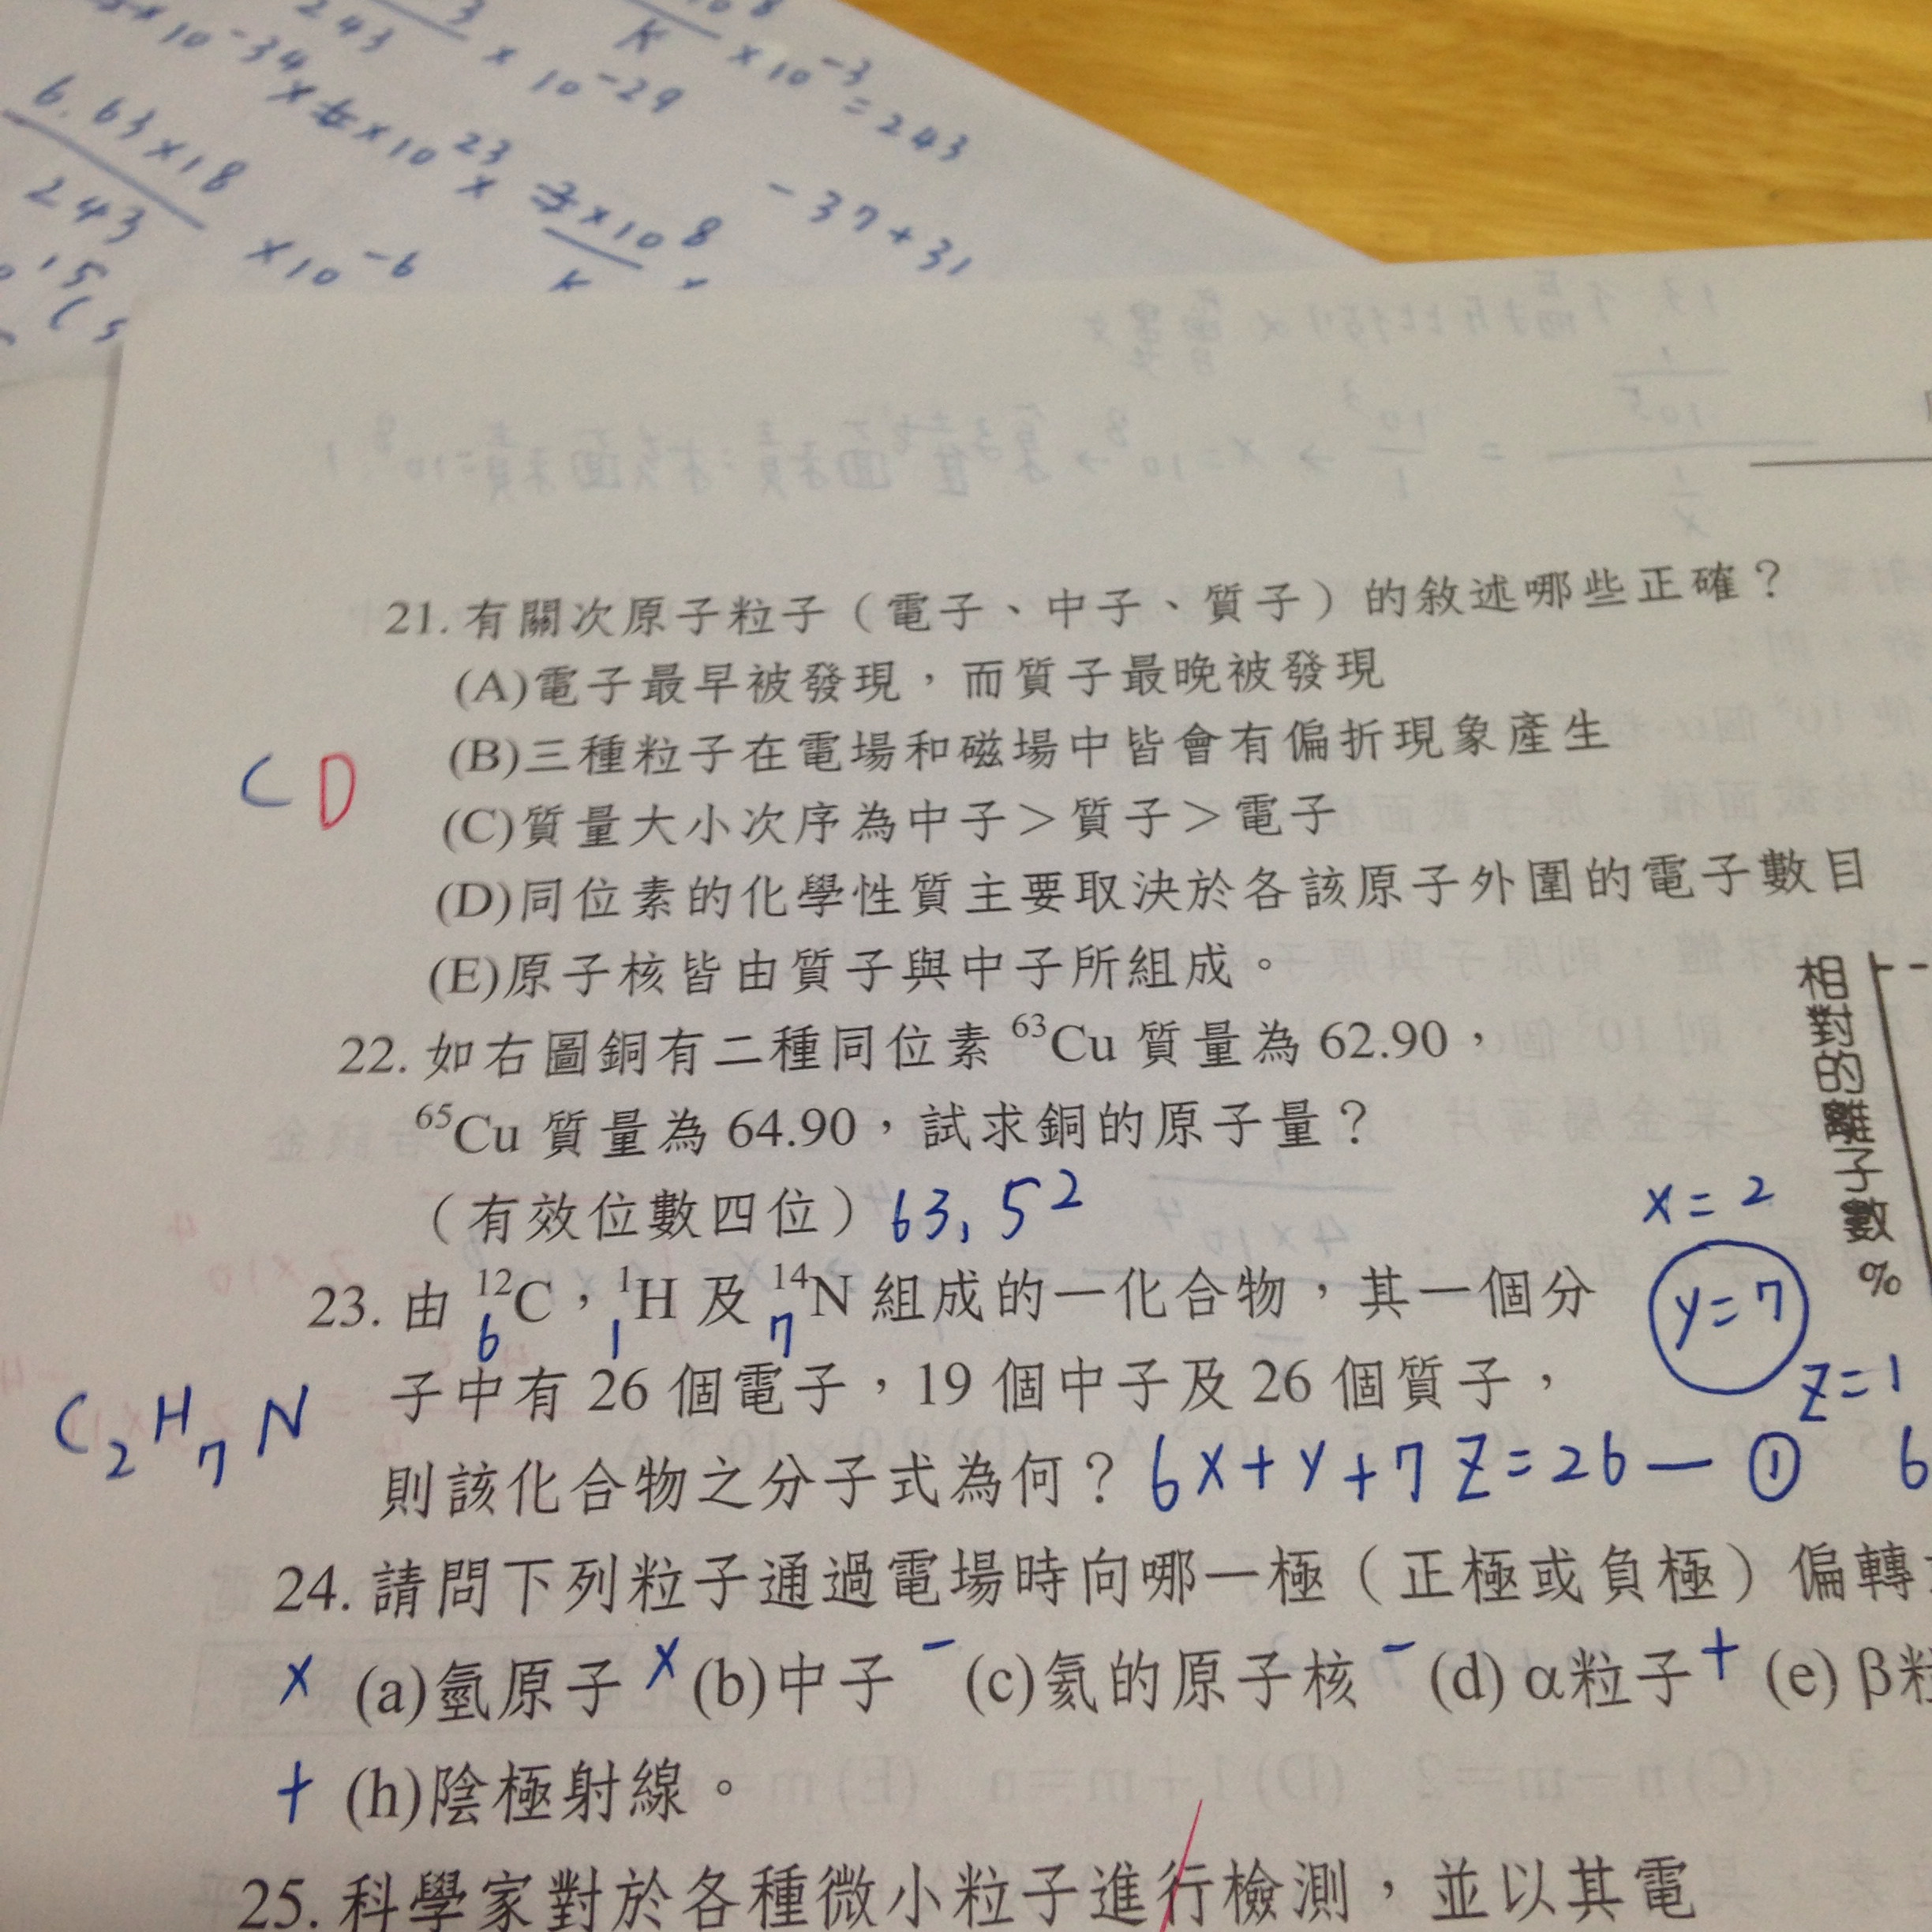 3
243 × 10⁻²⁹
K × 10⁻³ = 243
6.63×18
243 × 10⁻⁶
-37+31
21.有關次原子粒子（電子、中子、質子）的敘述哪些正確？
(A)電子最早被發現，而質子最晚被發現
(B)三種粒子在電場和磁場中皆會有偏折現象產生
C D
(C)質量大小次序為中子＞質子＞電子
(D)同位素的化學性質主要取決於各該原子外圍的電子數目
(E)原子核皆由質子與中子所組成。
相對的離子數%
22.如右圖銅有二種同位素 ⁶³Cu 質量為 62.90，
⁶⁵Cu 質量為 64.90，試求銅的原子量？
（有效位數四位）63.52
x=2
y=7
z=1
23.由 ¹²C，¹H 及 ¹⁴N 組成的一化合物，其一個分
6 1 7
子中有 26 個電子，19 個中子及 26 個質子，
C₂H₇N
則該化合物之分子式為何？6x+y+7z=26－① 6
24.請問下列粒子通過電場時向哪一極（正極或負極）偏轉
× (a)氫原子 × (b)中子 － (c)氦的原子核 － (d) α粒子 ＋ (e) β粒
＋ (h)陰極射線。
25.科學家對於各種微小粒子進行檢測，並以其電